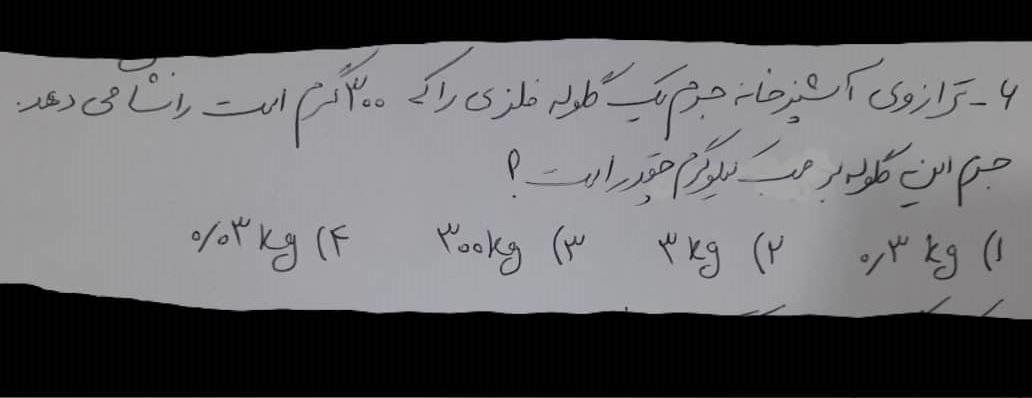 ۶- ترازوی آشپزخانه جرم یک گلوله فلزی را که ۳۰۰ گرم است را نشا می دهد.
جرم این گلوله بر حسب کیلوگرم چقدر است؟
۱) ۰٫۳ kg ۲) ۳ kg ۳) ۳۰۰ kg ۴) ۰/۰۳ kg